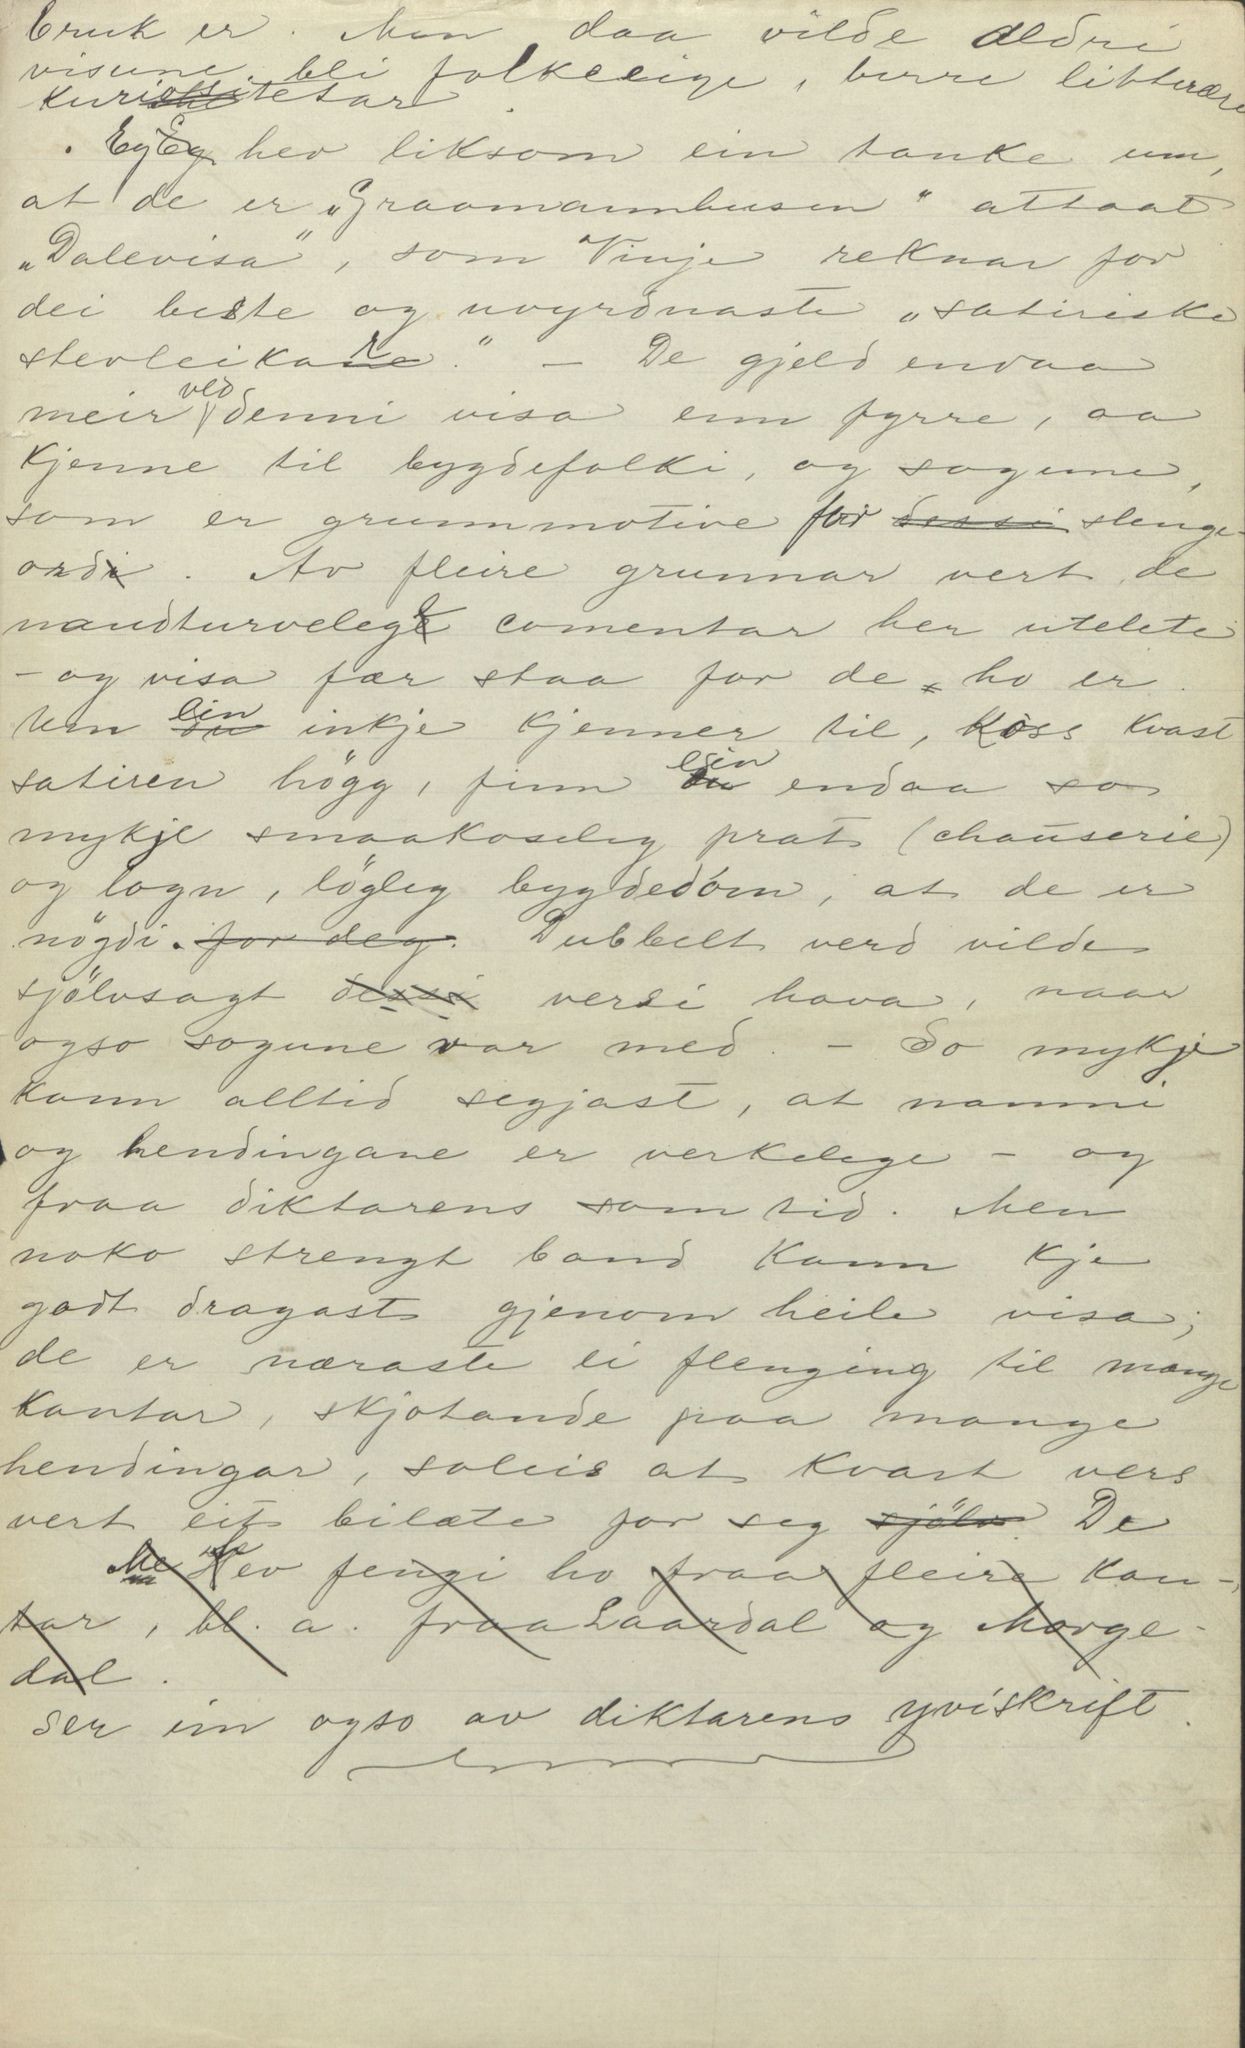 bruk er. Men daa vilde aldri
visune bli folkeeige, berre litterære
kuriositetar.
Eg Eg hev liksom ein tanke um,
at de er „Graamannbusen“ attaat
„Dalevisa“, som Vinje reknar for
dei beste og uvyrdnaste „satiriske
stevleikar.“ – De gjeld endaa
meir ved denni visa enn fyrre, aa
kjenne til bygdefolki, og sogune,
som er grunnmotive for dessi slenge-
ordi. Av fleire grunnar vert de
naudturvelege comentar her utelete
– og visa fær staa for de ho er.
Um ein du inkje kjenner til, koss kvast
satiren högg, finn ein du endaa so
mykje smaakoseleg prat (chauserie)
og logn, lögleg bygdedóm, at de er
nögdi. for deg. Dubbelt verd vilde
sjölvsagt dessi versi hava, naar
ogso sogune var med. – So mykje
kann alltid segjast, at namni
og hendingane er verkelege – og
fraa diktarens samtid. Men
noko strengt band kann kje
godt dragast gjenom heile visa;
de er næraste ei flenging til mange
kantar, skjotande paa mange
hendingar, soleis at kvart vers
vert eit bilæte for seg sjölv. De
Me hev fengi ho fraa fleire kan-
tar, bl. a. fraa Laardal og Morge-
dal.
ser ein ogso av diktarens yviskrift.